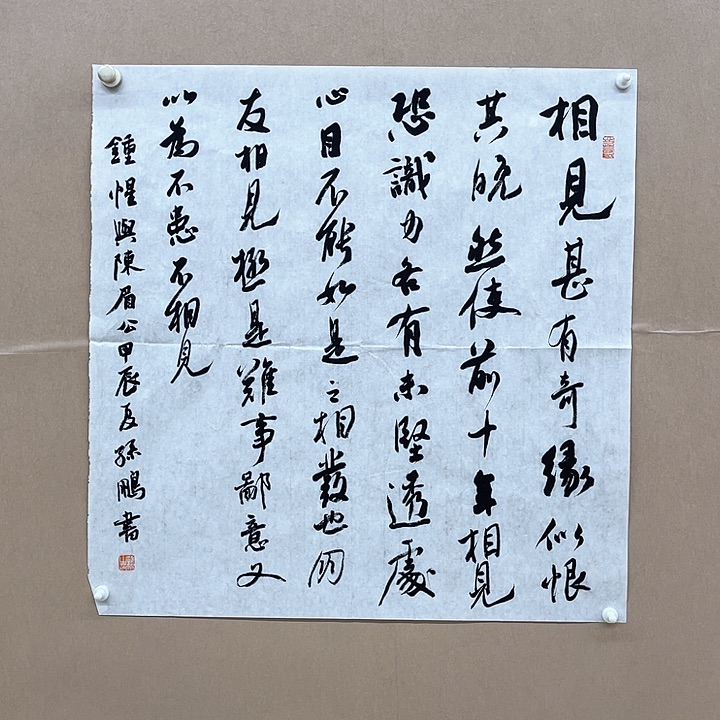 相見甚有奇緣似恨
其晚然使前十年相見
恐識力各有未堅透處
心目不能如是之相發也朋
友相見極是難事鄙意又
以為不患不相見
鍾惺與陳眉公甲辰夏孫鵬書